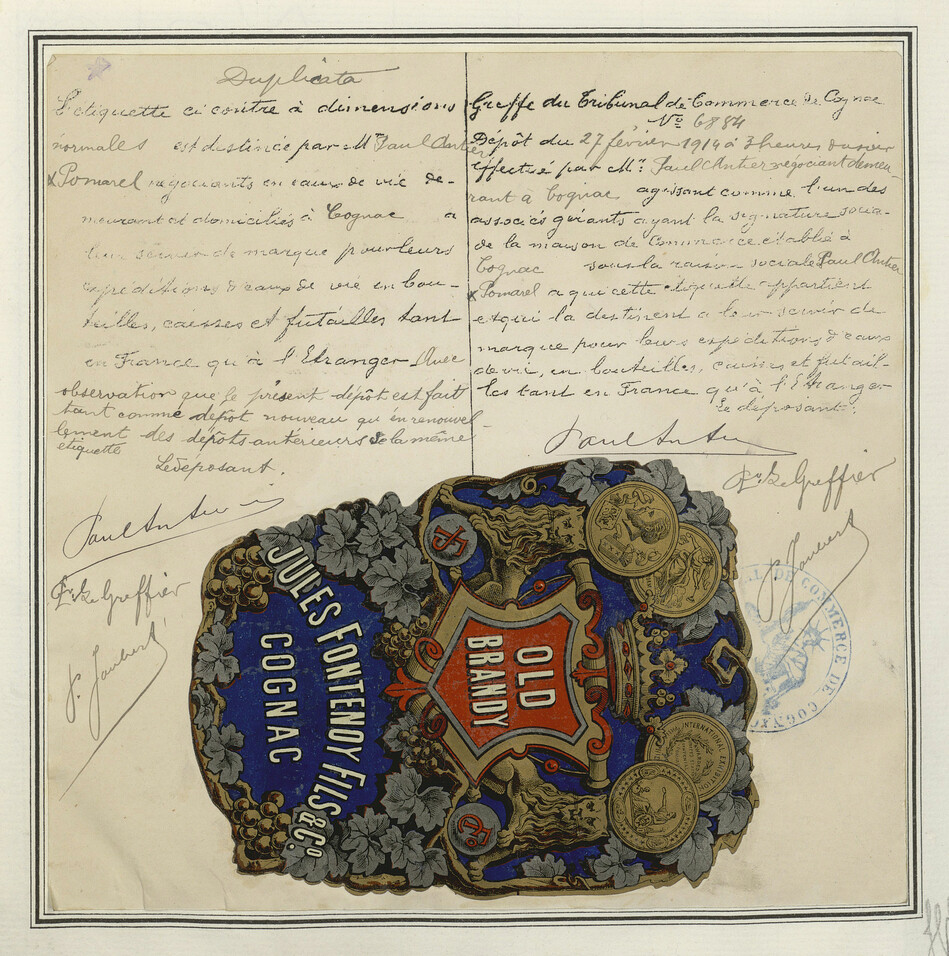 Duplicata
L'étiquette ci contre à dimensions
normales est destinée par MM Paul Antier
& Pomarel négociants en eaux de vie de-
meurant et domiciliés à Cognac a
leur servir de marque pour leurs
expéditions d'eaux de vie en bou-
teilles, caisses et futailles tant
en France qu'à l'Etranger Avec
observation que le présent dépôt est fait
tant comme dépot nouveau qu'en renouvel-
lement des dépôts antérieurs de la même
etiquette
Le déposant.
Paul Antier
Le Greffier
P. Joubert
Greffe du Tribunal de Commerce de Cognac
No 6884
Dépôt du 27 février 1914 à 3 heures du soir
effectué par M. Paul Antier négociant demeu-
rant à Cognac agissant comme l'un des
associés gérants ayant la signature socia-
de la maison de Commerce établie à
Cognac sous la raison sociale Paul Antier
& Pomarel a qui cette étiquette appartient
et qui la destinent a leur servir de
marque pour leurs expéditions d'eaux
de vie, en bouteilles, caisses et futail-
les tant en France qu'à l'Etranger
Le déposant.
Paul Antier
Le Greffier
P. Joubert
JULES FONTENOY FILS & Co.
COGNAC
OLD
BRANDY
INTERNATIONAL EXHIBITION
DE COMMERCE DE COGNAC